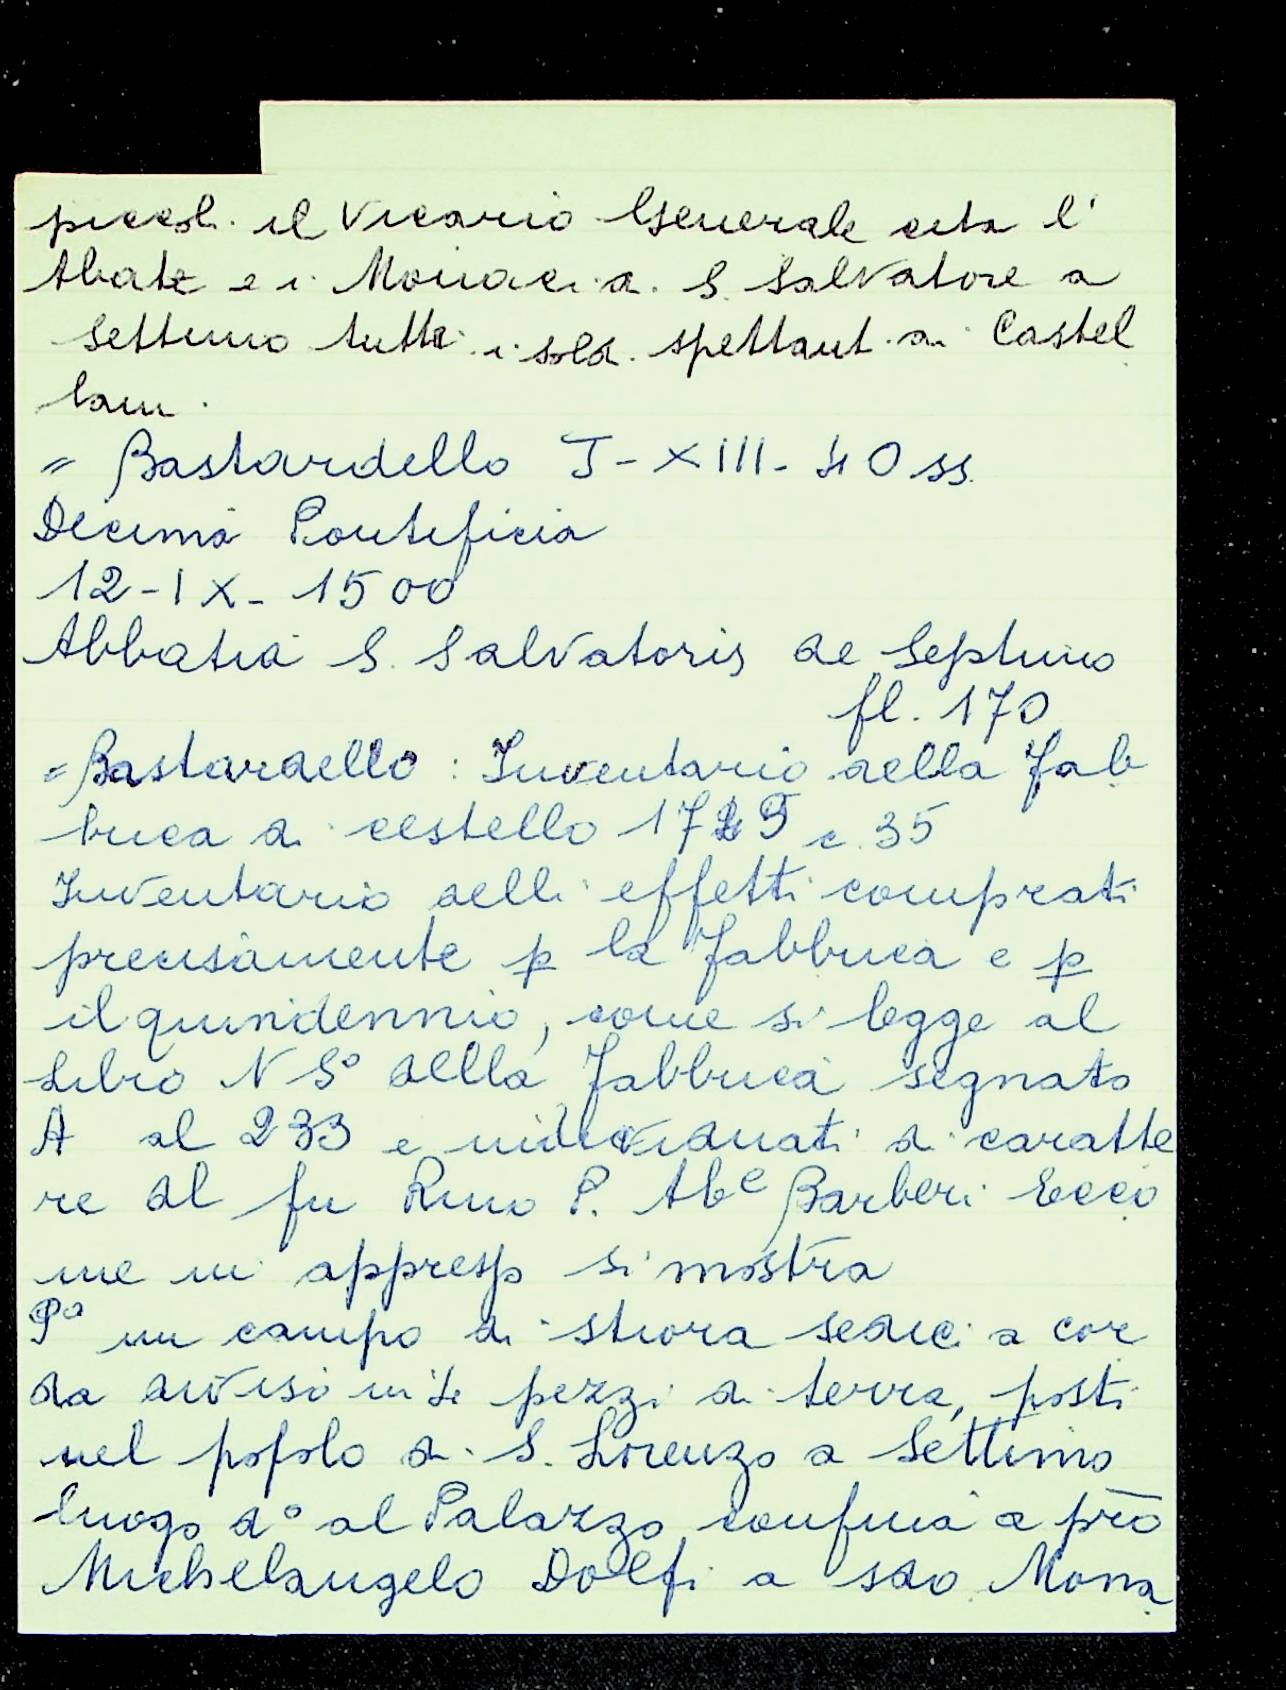 piccoli il Vicario Generale cita l'
Abate e i Monaci di S. Salvatore a
Settimo tutti i soldi spettanti ai Castel
lani.
= Bastardello J-XIII-40 ss.
Decima Pontificia
12-IX-1500
Abbatia S. Salvatoris de Septimo
fl. 170
= Bastardello: Inventario della Fab
brica di cestello 1729 c. 35
Inventario delli effetti comprati
precisamente p la Fabbrica e p
il quindennio, come si legge al
Libro N 5° della Fabbrica segnato
A al 233 e individuati di caratte
re del fu Rmo P. Abe Barberi Ecco
me in appresso si mostra
P° un campo di stiora sedici a cor
da diviso in 4 pezzi di terra, posti
nel popolo di S. Lorenzo a Settimo
luogo d° al Palazzo confina a pro
Michelangelo Dolfi a sdo Mona